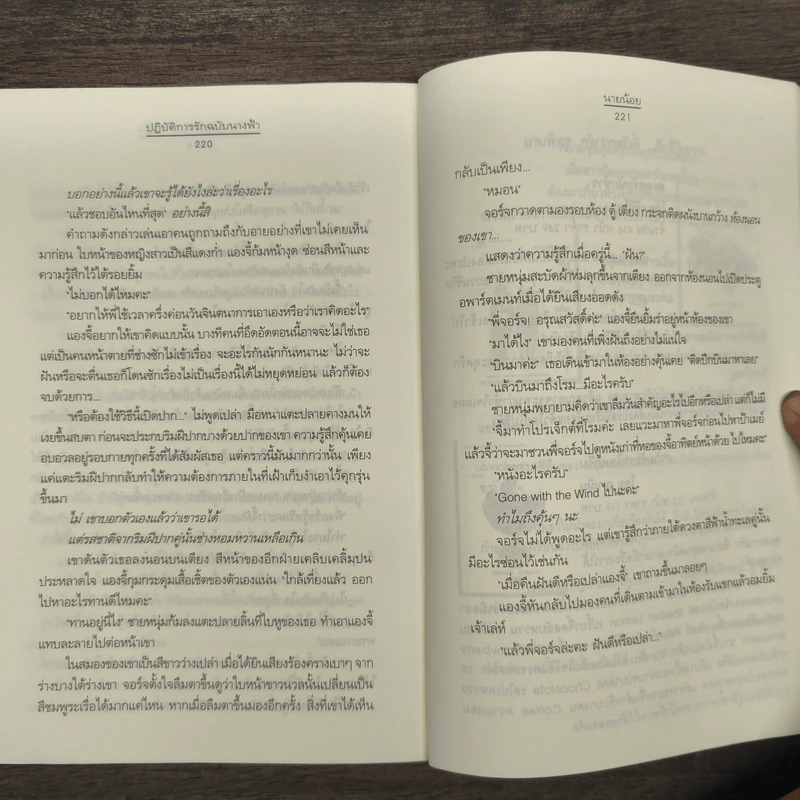 ปฏิบัติการรักฉบับนางฟ้า
220
บอกอย่างนี้แล้วเขาจะรู้ได้ยังไงล่ะว่าเรื่องอะไร
"แล้วชอบอันไหนที่สุด" อย่างนี้สิ
คำถามดังกล่าวเล่นเอาคนถูกถามถึงกับอายอย่างที่เขาไม่เคยเห็น
มาก่อน ใบหน้าของหญิงสาวเป็นสีแดงก่ำ แองจี้ก้มหน้างุด ซ่อนสีหน้าและ
ความรู้สึกไว้ใต้รอยยิ้ม
"ไม่บอกได้ไหมคะ"
"อยากให้พี่ใช้เวลาครึ่งค่อนวันจินตนาการเอาเองหรือว่าเราคิดอะไร"
แองจี้อยากให้เขาคิดแบบนั้น บางทีคนที่อึดอัดตอนนี้อาจจะไม่ใช่เธอ
แต่เป็นคนหน้าตายที่ช่างซักไม่เข้าเรื่อง จะอะไรกันนักกันหนานะ ไม่ว่าจะ
ฝันหรือจะตื่นเธอก็โดนซักเรื่องไม่เป็นเรื่องนี้ได้ไม่หยุดหย่อน แล้วก็ต้อง
จบด้วยการ...
"หรือต้องใช้วิธีนี้เปิดปาก..." ไม่พูดเปล่า มือหนาแตะปลายคางมนให้
เงยขึ้นสบตา ก่อนจะประกบริมฝีปากบางด้วยปากของเขา ความรู้สึกคุ้นเคย
อบอวลอยู่รอบกายทุกครั้งที่ได้สัมผัสเธอ แต่คราวนี้มันมากกว่านั้น เพียง
แค่แตะริมฝีปากกลับทำให้ความต้องการภายในที่เฝ้าเก็บงำเอาไว้คุกรุ่น
ขึ้นมา
ไม่ เขาบอกตัวเองแล้วว่าเขารอได้
แต่รสชาติจากริมฝีปากคู่นั้นช่างหอมหวานเหลือเกิน
เขาดันตัวเธอลงนอนบนเตียง สีหน้าของอีกฝ่ายเคลิบเคลิ้มปน
ประหลาดใจ แองจี้กุมกระดุมเสื้อเชิ้ตของตัวเองแน่น "ใกล้เที่ยงแล้ว ออก
ไปหาอะไรทานดีไหมคะ"
"ทานอยู่นี่ไง" ชายหนุ่มก้มลงแตะปลายลิ้นที่ใบหูของเธอ ทำเอาแองจี้
แทบละลายไปต่อหน้าเขา
ในสมองของเขาเป็นสีขาวว่างเปล่า เมื่อได้ยินเสียงร้องครางเบาๆ จาก
ร่างบางใต้ร่างเขา จอร์จตั้งใจลืมตาขึ้นดูว่าใบหน้าขาวนวลนั้นเปลี่ยนเป็น
สีชมพูระเรื่อได้มากแค่ไหน หากเมื่อลืมตาขึ้นมองอีกครั้ง สิ่งที่เขาได้เห็น
นายน้อย
221
กลับเป็นเพียง...
"หมอน"
จอร์จกวาดตามองรอบห้อง ตู้ เตียง กระจกติดผนังบานกว้าง ห้องนอน
ของเขา...
แสดงว่าความรู้สึกเมื่อครู่นี้... "ฝัน?"
ชายหนุ่มสะบัดผ้าห่มลุกขึ้นจากเตียง ออกจากห้องนอนไปเปิดประตู
อพาร์ตเมนท์เมื่อได้ยินเสียงออดดัง
"พี่จอร์จ! อรุณสวัสดิ์ค่ะ" แองจี้ยืนยิ้มร่าอยู่หน้าห้องของเขา
"มาได้ไง" เขามองคนที่เพิ่งฝันถึงอย่างไม่แน่ใจ
"บินมาค่ะ" เธอเดินเข้ามาในห้องอย่างคุ้นเคย "ติดปีกบินมาหาเลย"
"แล้วบินมาถึงโรม...มีอะไรครับ"
ชายหนุ่มพยายามคิดว่าเขาลืมวันสำคัญอะไรไปอีกหรือเปล่า แต่ก็ไม่มี
"จี้มาทำโปรเจ็กต์ที่โรมค่ะ เลยแวะมาหาพี่จอร์จก่อนไปหาป้าเมย์
แล้วจี้ว่าจะมาชวนพี่จอร์จไปดูหนังเก่าที่หอของจี้อาทิตย์หน้าด้วย ไปไหมคะ"
"หนังอะไรครับ"
"Gone with the Wind ไปนะคะ"
ทำไมถึงคุ้นๆ นะ
จอร์จไม่ได้พูดอะไร แต่เขารู้สึกว่าภายใต้ดวงตาสีฟ้าน้ำทะเลคู่นั้น
มีอะไรซ่อนไว้เช่นกัน
"เมื่อคืนฝันดีหรือเปล่าแองจี้" เขาถามขึ้นมาลอยๆ
แองจี้หันกลับไปมองคนที่เดินตามเข้ามาในห้องรับแขกแล้วอมยิ้ม
เจ้าเล่ห์
"แล้วพี่จอร์จล่ะคะ ฝันดีหรือเปล่า..."